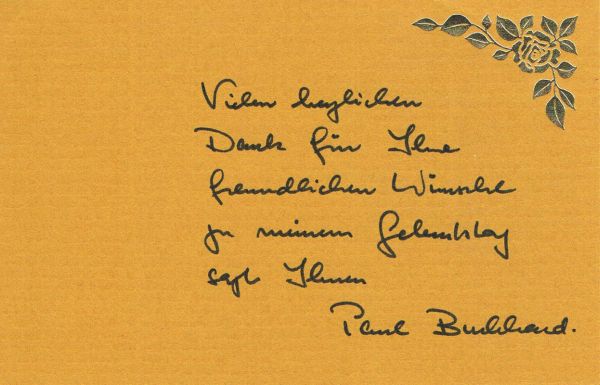 Vielen herzlichen
Dank für Ihre
freundlichen Wünsche
zu meinem Geburtstag
sagt Ihnen
Paul Burkhard.